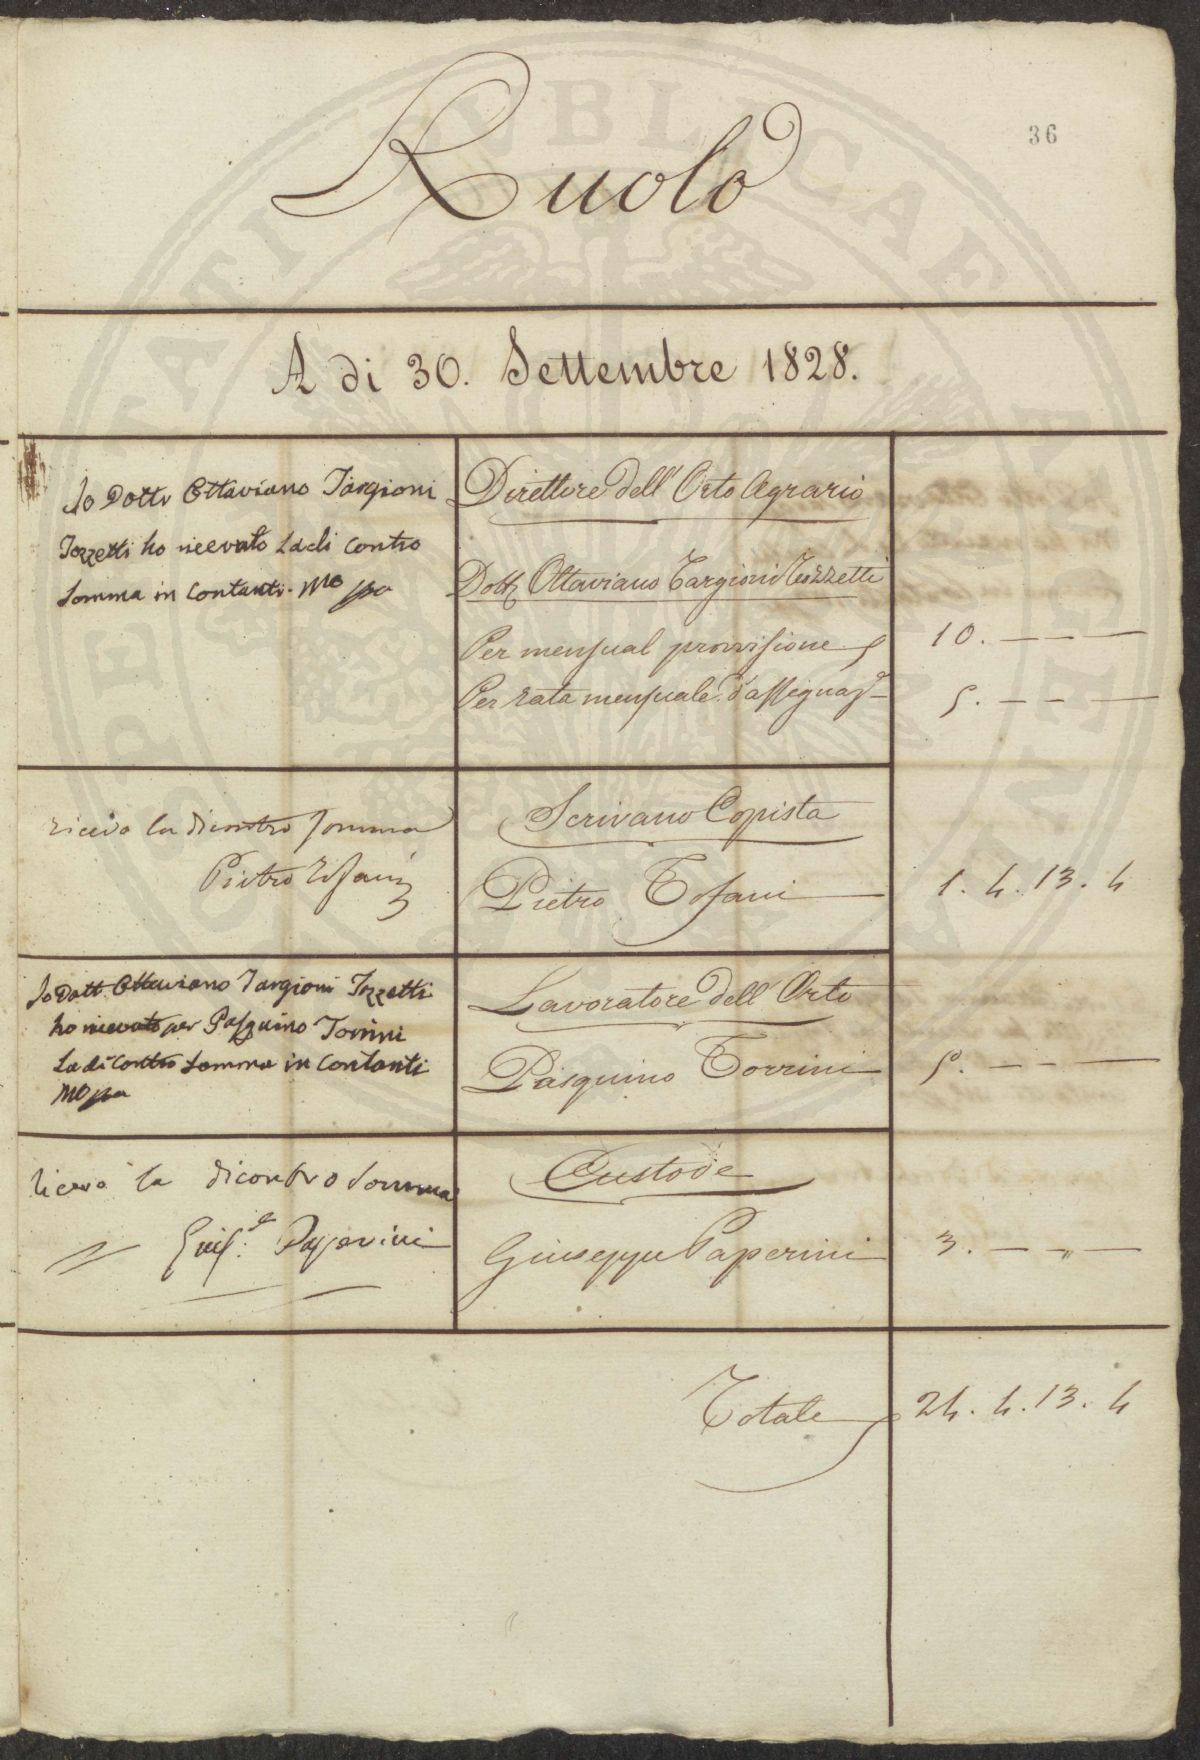 36
Ruolo
A di 30. Settembre 1828.
Io Dottr Ottaviano Targioni
Tozzetti ho ricevuto La di contro
Somma in Contanti. Mo ppa
Direttore dell' Orto Agrario
Dottr Ottaviano Targioni Tozzetti
Per mensual provvisione 10. — — —
Per rata mensuale d'assegnaz.e 5. — — —
ricevo la dicontro somma
Pietro Tofani
Scrivano Copista
Pietro Tofani 1. 4. 13. 4
Io Dott. Ottaviano Targioni Tozzetti
ho ricevuto per Pasquino Torrini
La di Contro Somma in Contanti
Mo ppa
Lavoratore dell' Orto
Pasquino Torrini 5. — — —
ricevo la dicontro Somma
Gius.e Paperini
Custode
Giuseppe Paperini 3. — „ —
Totale 24. 4. 13. 4